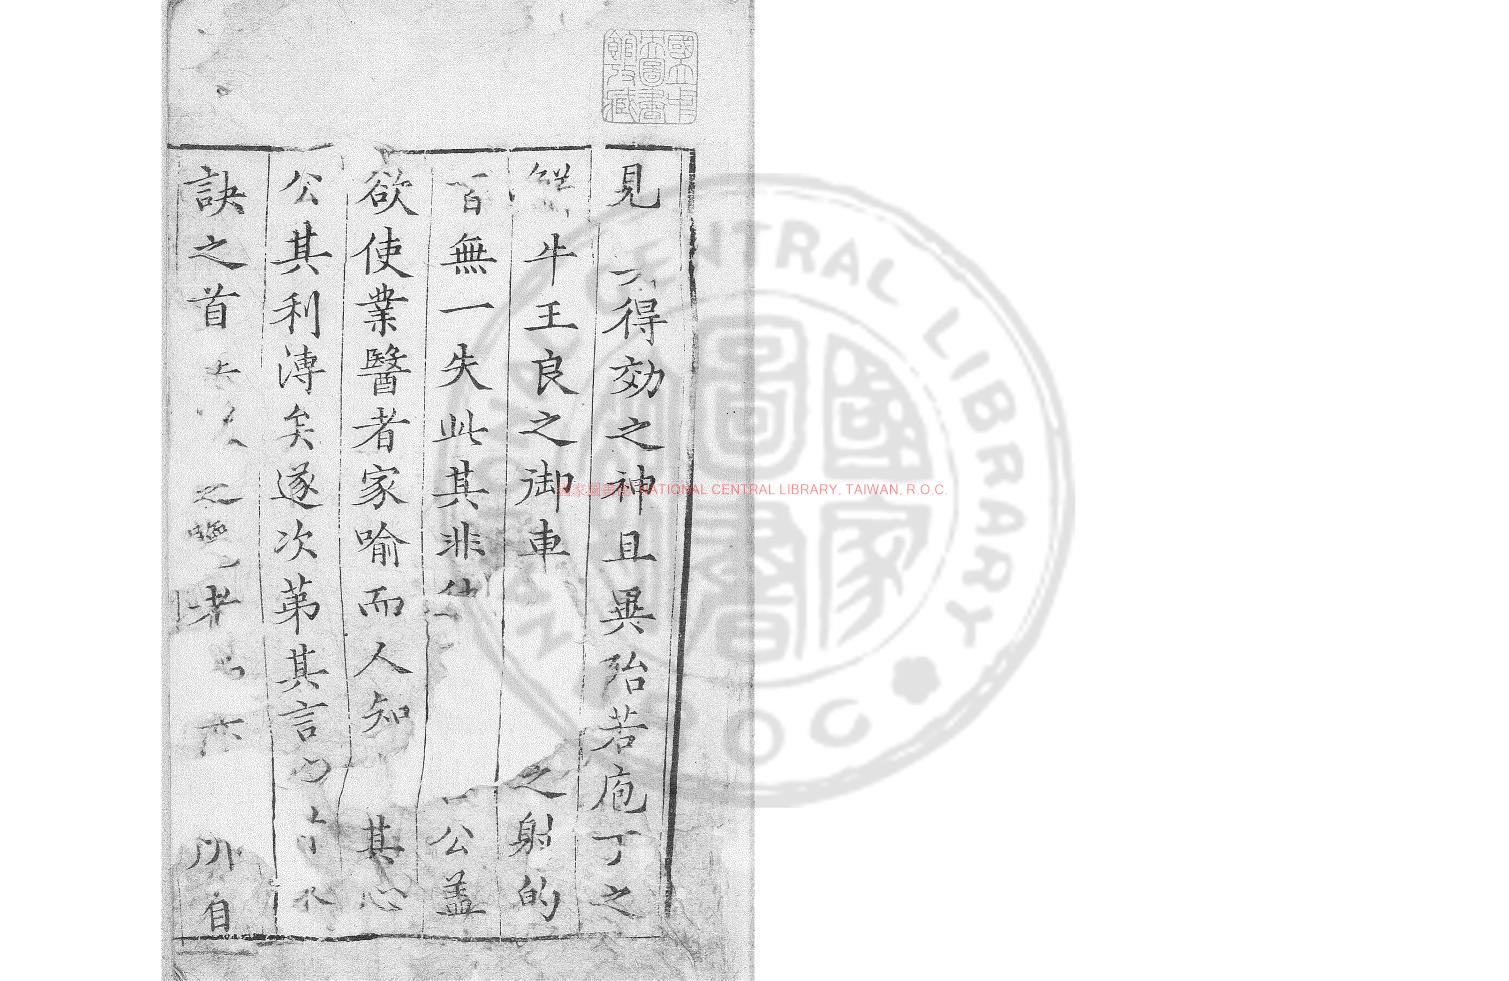 見得効之神且異殆若庖丁之
牛王良之御車之射的
百無一失此其非公盖
欲使業醫者家喻而人知其心
公其利溥矣遂次第其言
訣之首之所自
國立中央圖書館收藏
國家圖書館 NATIONAL CENTRAL LIBRARY, TAIWAN, R.O.C.
NATIONAL CENTRAL LIBRARY
ROC
國家圖書